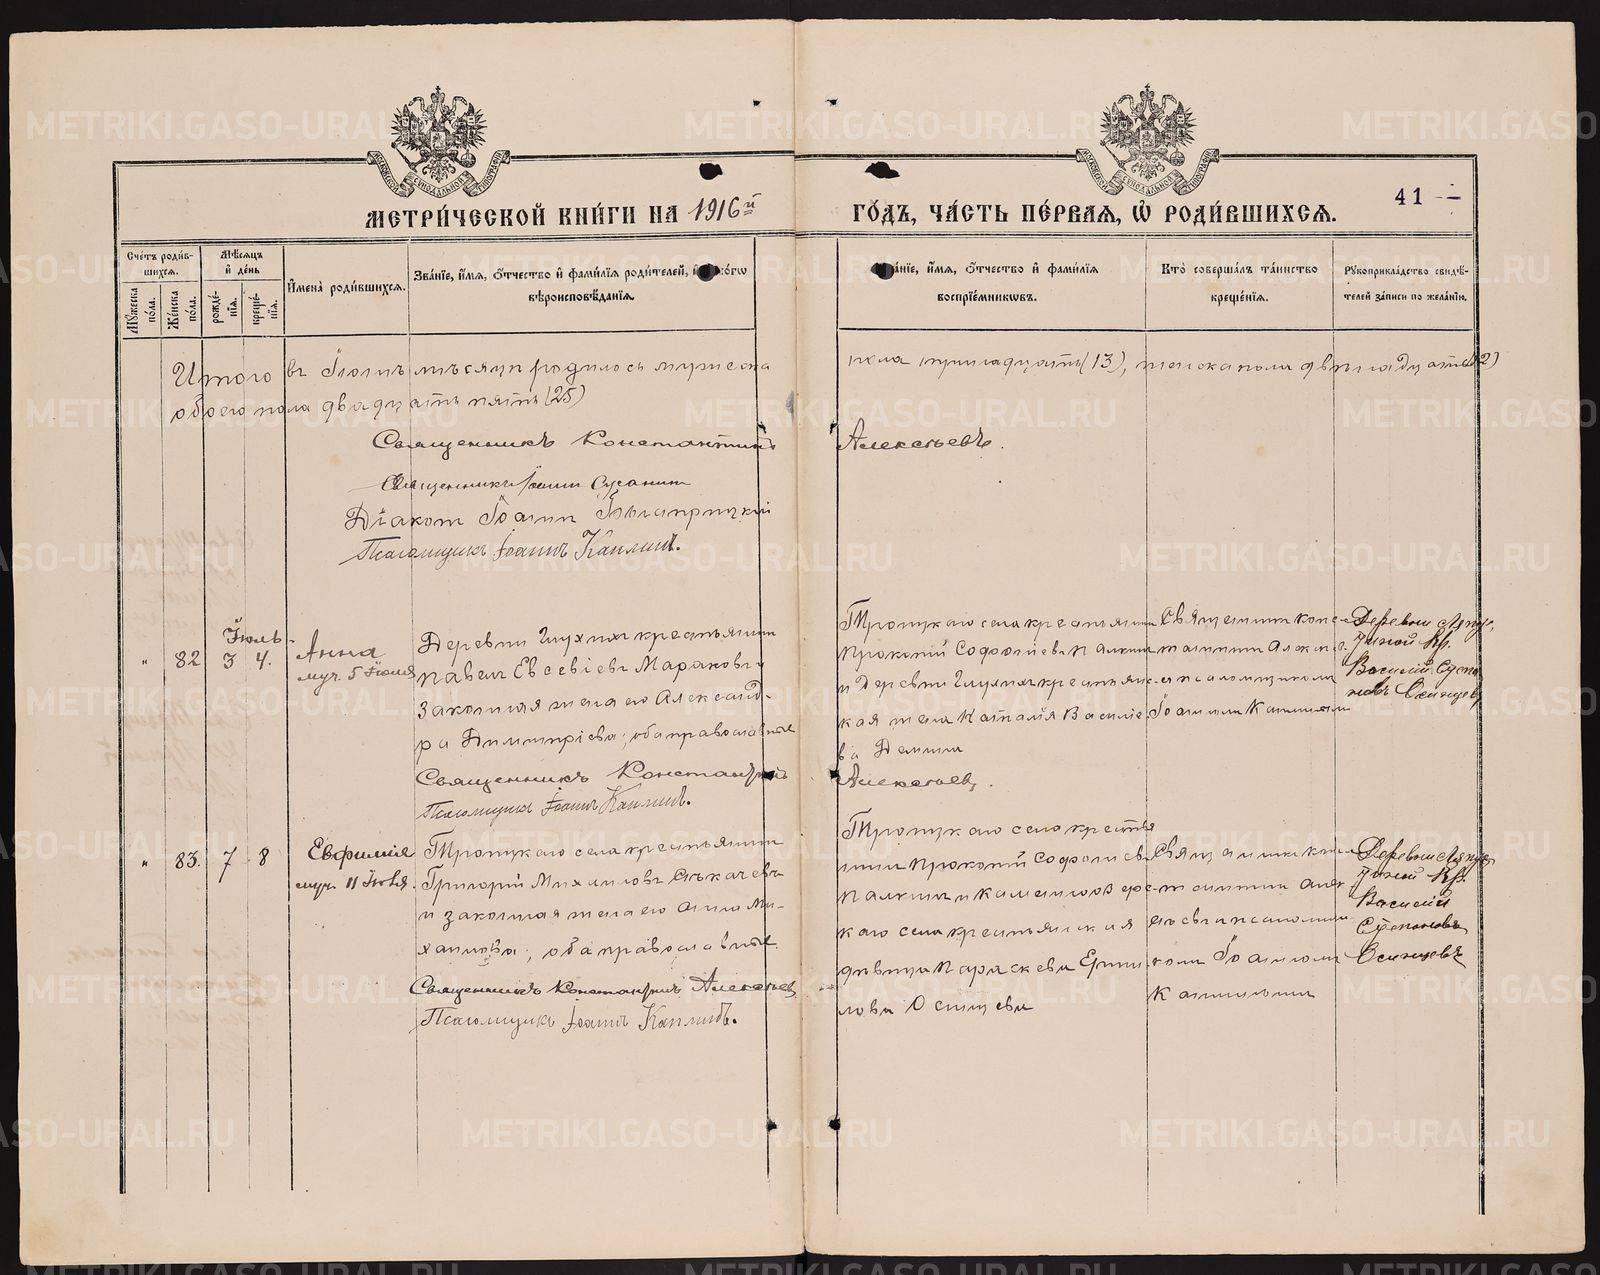 МЕТРИ́ЧЕСКОЙ КНИ́ГИ НА 1916й ГО́ДЪ, ЧА́СТЬ ПЕ́РВАЯ, Ѡ҆ РОДИ́ВШИХСЯ.
41
Сче́тъ роди́вшихся.
Му́жеска по́ла.
Же́нска по́ла.
Мѣ́сяцъ и҆ де́нь
рожде́нїя.
креще́нїя.
И҆мена̀ роди́вшихся.
Зва́нїе, и҆́мя, ѻ҆́тчество и҆ фами́лїя роди́телей, и҆ како́гѡ
вѣроисповѣ́данїя.
Зва́нїе, и҆́мя, ѻ҆́тчество и҆ фами́лїя
воспрїе́мникѡвъ.
Кто̀ соверша́лъ та́инство
креще́нїя.
Рукоприкла́дство свидѣ́-
телей за́писи по жела́нїю.
Итого въ Іюнѣ мѣсяцѣ родилось мужеска пола тринадцать (13), женска пола двѣнадцать (12)
обоего пола двадцать пять (25)
Священникъ Константинъ Алексѣевъ.
Священникъ Іоаннъ Сусанинъ
Діаконъ Іоаннъ
Псаломщикъ Іоаннъ Каплинъ.
Іюль
" 82 3 4.
Анна
муч. 5 Іюля
Деревни Глухихъ крестьянинъ
Павелъ Евсевіевъ Мараковъ и
законная жена его Александ-
ра Димитріева; оба православные
Священникъ Константинъ Алексѣевъ.
Псаломщикъ Іоаннъ Каплинъ.
Троицкаго села крестьянинъ
Прокопій Софоніевъ Палкинъ
и деревни Глухихъ крестьянс-
кая жена Наталія Василіе-
ва Демина
Священникъ Конс-
тантинъ Алексѣ-
евъ и псаломщикомъ
Іоанномъ Каплинымъ
Деревни Ляпу-
стиной Кр.
Василій Степа-
новъ Осинцевъ
" 83. 7 8
Евфимія
муч. 11 Іюля.
Троицкаго села крестьянинъ
Григорій Михаиловъ Скакачевъ
и законная жена его Анна Ми-
хаилова; оба православные.
Священникъ Константинъ Алексѣевъ
Псаломщикъ Іоаннъ Каплинъ.
Троицкаго села крестья-
нинъ Прокопій Софоніевъ
Палкинъ и
каго села крестьянская
дѣвица Параскева Ерми-
лова Осинцева
Священникъ Конс-
тантинъ Алек-
сѣевъ и псаломщи-
комъ Іоанномъ
Каплинымъ
Деревни Ляпус-
тиной Кр.
Василій
Степановъ
Осинцевъ
METRIKI.GASO-URAL.RU